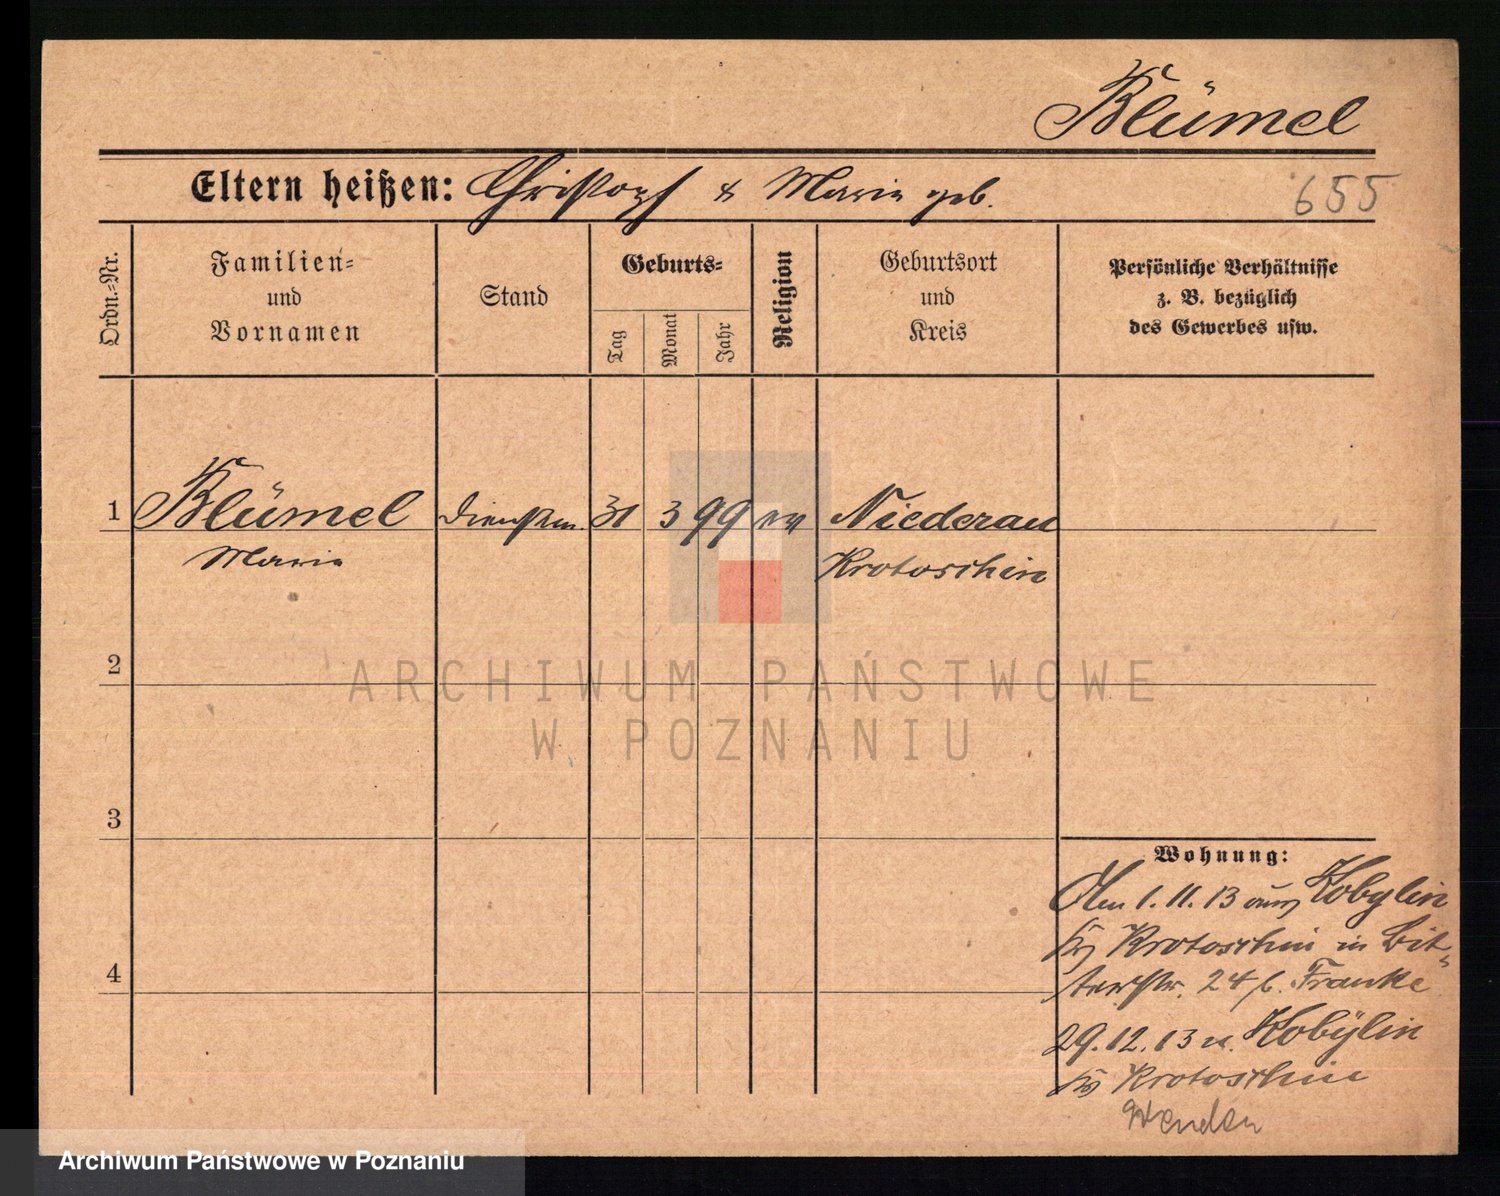 Blümel
Eltern heißen: Christoph & Marie geb.
655
Ordn.-Nr.
Familien-
und
Vornamen
Stand
Geburts-
Tag
Monat
Jahr
Religion
Geburtsort
und
Kreis
Persönliche Verhältnisse
z. B. bezüglich
des Gewerbes usw.
1 Blümel Dienstm. 31 3 99 ev Niederau
Marie Krotoschin
2
ARCHIWUM PAŃSTWOWE
W POZNANIU
3
Wohnung:
Am 1. 11. 13 aus Kobylin
Krs Krotoschin in Bit-
terstr. 24 b. Franke
29. 12. 13 n. Kobÿlin
Krs Krotoschin
4
Wenden
Archiwum Państwowe w Poznaniu